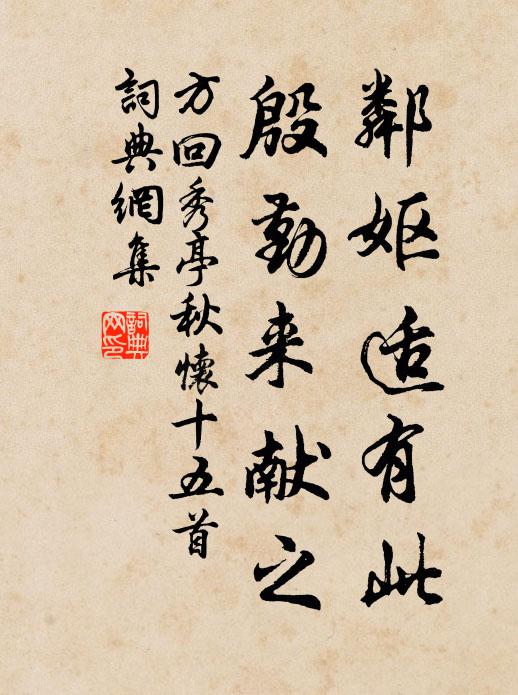 鄰妪适有此
殷勤来献之
方回秀亭秋懷十五首
詞典網集
詞典网印